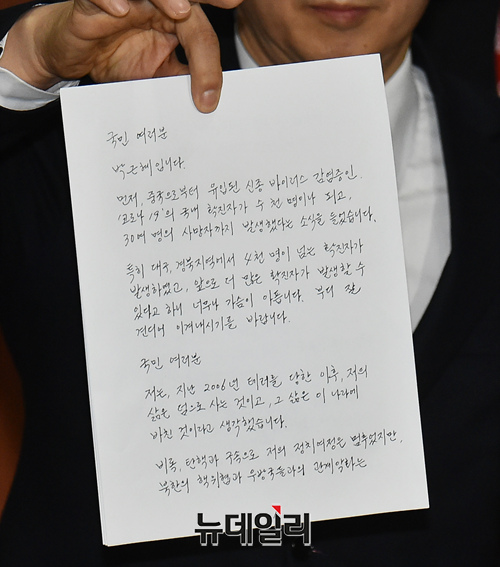 국민 여러분
박근혜입니다.
먼저, 중국으로부터 유입된 신종 바이러스 감염증인
'코로나 19'의 국내 확진자가 수 천 명이나 되고,
30여 명의 사망자까지 발생했다는 소식을 들었습니다.
특히 대구, 경북지역에서 4천 명이 넘는 확진자가
발생하였고, 앞으로 더 많은 확진자가 발생할 수
있다고 하니 너무나 가슴이 아픕니다. 부디 잘
견디어 이겨내시기를 바랍니다.
국민 여러분
저는, 지난 2006년 테러를 당한 이후, 저의
삶은 덤으로 사는 것이고, 그 삶은 이 나라에
바친 것이라고 생각했습니다.
비록, 탄핵과 구속으로 저의 정치여정은 멈추었지만,
북한의 핵위협과 우방국들과의 관계악화는
뉴데일리